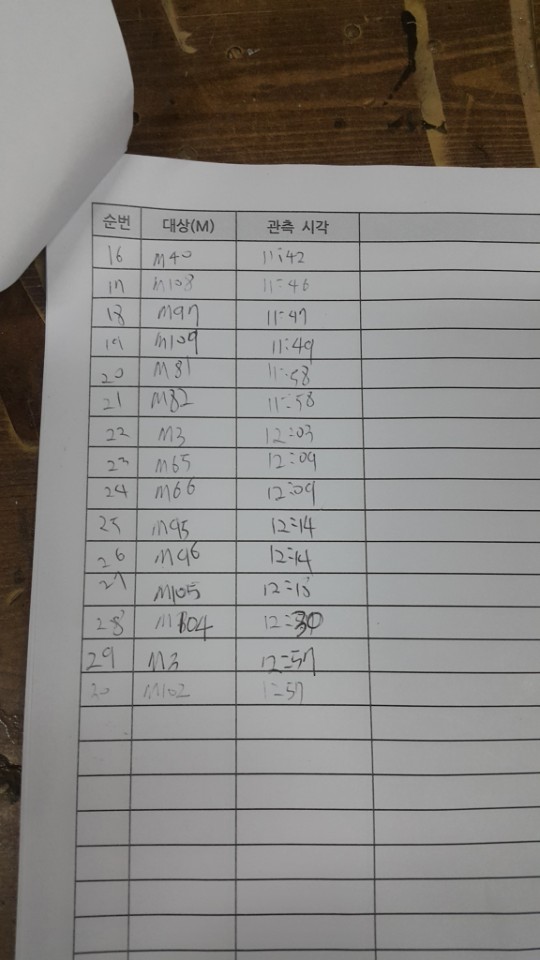 순번 대상(M) 관측 시각
16 M40 11:42
17 M108 11:46
18 M97 11:47
19 M109 11:49
20 M81 11:58
21 M82 11:58
22 M3 12:03
23 M65 12:09
24 M66 12:09
25 M95 12:14
26 M96 12:14
27 M105
28 M104 12:30
29 M3 12:57
30 M102 1:57